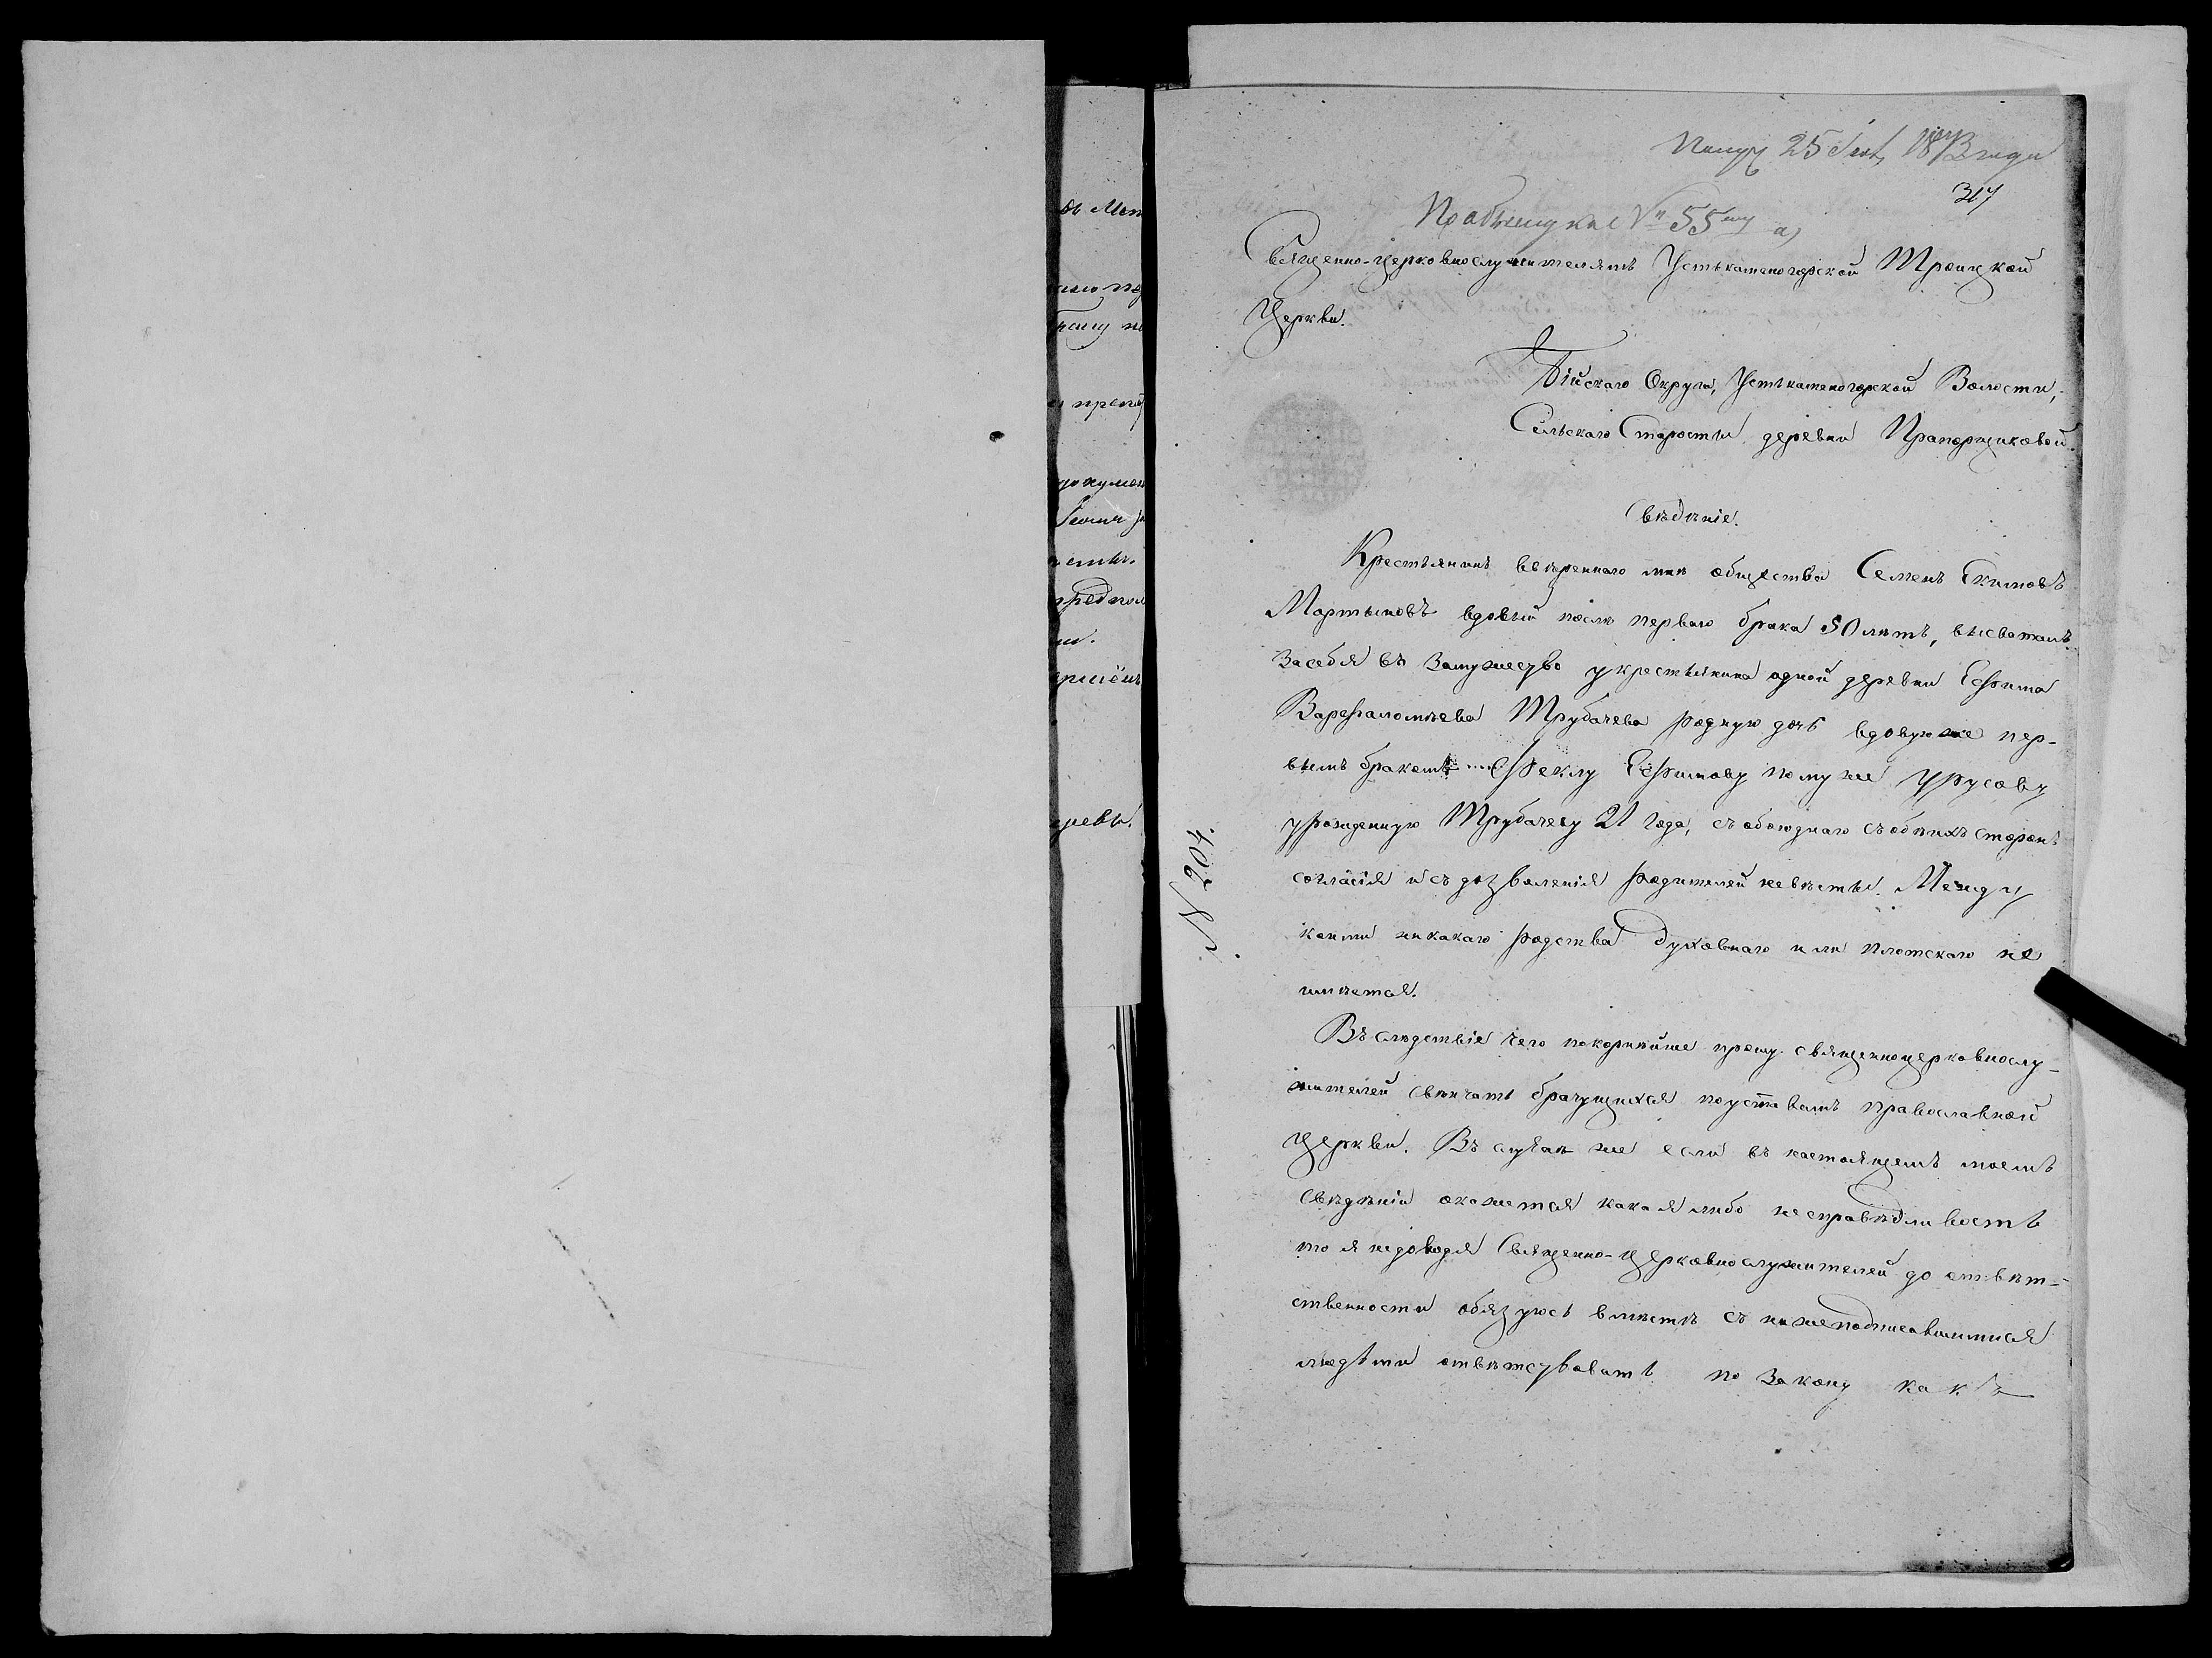 25 18 года
317
По обыску № 55му
Священно-церковнослужителямъ Устькаменогорской Троицкой
Церкви.
Бійскаго Округа, Устькаменогорской Волости,
Сельскаго Старосты деревни Прапорщиковой
Свѣдѣніе.
Крестьянинъ ввѣреннаго мнѣ общества Семенъ Екимовъ
Мартыновъ вдовый послѣ перваго брака 50 лѣтъ, высваталъ
за себя въ замужество у крестьянина одной деревни Ефима
Варфаломѣева Трубачева родную дочь вдовую же пер-
вымъ бракомъ Феклу Ефимову по мужѣ Урусову
урожденную Трубачеву 21 года, съ обоюднаго съ обѣихъ сторонъ
согласія и съ дозволенія родителей невѣсты. Между
коими никакаго родства духовнаго или плотскаго не
имѣется.
Въ слѣдствіе чего покорнѣйше прошу священноцерковнослу-
жителей свѣнчать брачущихся по уставамъ православной
Церкви. Въ случаѣ же если въ настоящемъ моемъ
свѣдѣніи окажется какая либо несправѣдливость
то я недоводя Священно-Церковнослужителей до отвѣт-
ственности обязуюсь вмѣстѣ съ нижеподписавшимися
людьми отвѣтствовать по Закону какъ
№ 204.